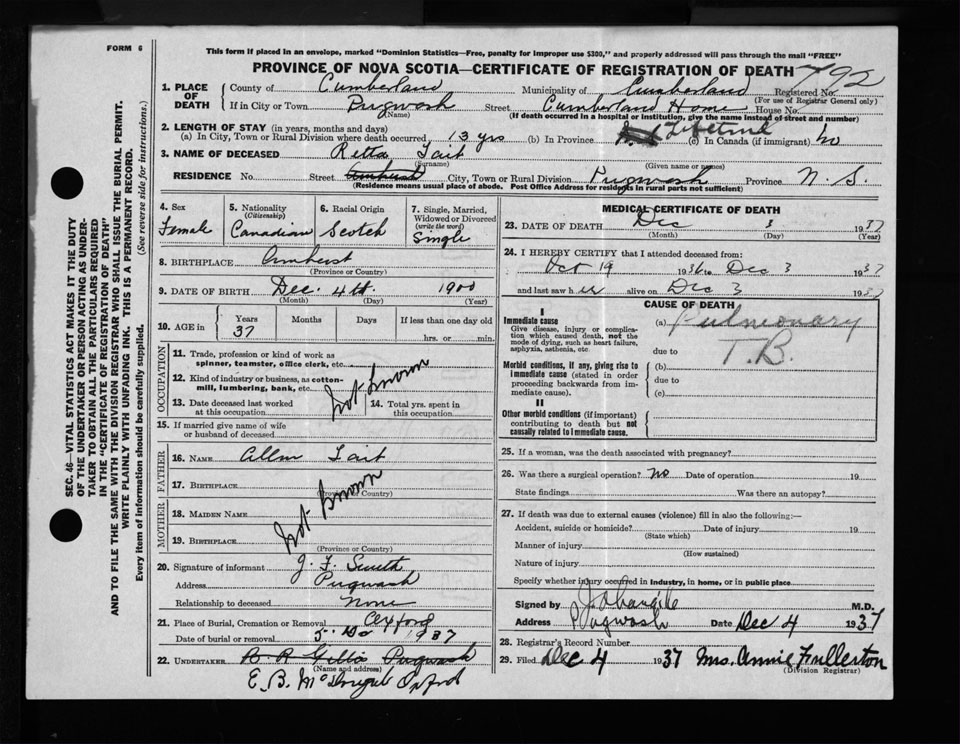 FORM 6
This form if placed in an envelope, marked "Dominion Statistics—Free, penalty for improper use $300," and properly addressed will pass through the mail "FREE"
PROVINCE OF NOVA SCOTIA—CERTIFICATE OF REGISTRATION OF DEATH 792
1. PLACE OF DEATH County of Cumberland Municipality of Cumberland Registered No.
(For use of Registrar General only)
If in City or Town Pugwash Street Cumberland Home House No.
(Name) (If death occurred in a hospital or institution, give the name instead of street and number)
2. LENGTH OF STAY (in years, months and days)
(a) In City, Town or Rural Division where death occurred 13 yrs (b) In Province Lifetime (c) In Canada (if immigrant) no
3. NAME OF DECEASED Retta Tait
(Surname) (Given name or names)
RESIDENCE No. Street Amherst City, Town or Rural Division Pugwash Province N. S.
(Residence means usual place of abode. Post Office Address for residents in rural parts not sufficient)
4. Sex Female
5. Nationality (Citizenship) Canadian
6. Racial Origin Scotch
7. Single, Married, Widowed or Divorced (write the word) Single
8. BIRTHPLACE Amherst
(Province or Country)
9. DATE OF BIRTH Dec. 4th 1900
(Month) (Day) (Year)
10. AGE in Years Months Days If less than one day old
37 hrs. or min.
OCCUPATION
11. Trade, profession or kind of work as spinner, teamster, office clerk, etc.
12. Kind of industry or business, as cotton-mill, lumbering, bank, etc.
Not Known
13. Date deceased last worked at this occupation
14. Total yrs. spent in this occupation
15. If married give name of wife or husband of deceased
FATHER
16. NAME Allen Tait
17. BIRTHPLACE
(Province or Country)
MOTHER
18. MAIDEN NAME
Not Known
19. BIRTHPLACE
(Province or Country)
20. Signature of informant J. F. Smith
Address Pugwash
Relationship to deceased None
21. Place of Burial, Cremation or Removal Oxford
Date of burial or removal 5. 1937
22. UNDERTAKER Pugwash
(Name and address)
E. B. Oxford
MEDICAL CERTIFICATE OF DEATH
23. DATE OF DEATH Dec 3 1937
(Month) (Day) (Year)
24. I HEREBY CERTIFY that I attended deceased from:
Oct 19 1936 to Dec 3 1937
and last saw her alive on Dec 3 1937
CAUSE OF DEATH
I
Immediate cause
Give disease, injury or complication which caused death, not the mode of dying, such as heart failure, asphyxia, asthenia, etc.
(a) Pulmonary
due to T.B.
Morbid conditions, if any, giving rise to immediate cause (stated in order proceeding backwards from immediate cause).
(b)
due to
(c)
II
Other morbid conditions (if important) contributing to death but not causally related to immediate cause.
25. If a woman, was the death associated with pregnancy?
26. Was there a surgical operation? No Date of operation 19
State findings Was there an autopsy?
27. If death was due to external causes (violence) fill in also the following:—
Accident, suicide or homicide? Date of injury 19
(State which)
Manner of injury
(How sustained)
Nature of injury
Specify whether injury occurred in industry, in home, or in public place
Signed by M.D.
Address Pugwash Date Dec 4 1937
28. Registrar's Record Number
29. Filed Dec 4 1937 Mrs. Annie Fullerton
(Division Registrar)
SEC. 46—VITAL STATISTICS ACT MAKES IT THE DUTY
OF THE UNDERTAKER OR PERSON ACTING AS UNDER-
TAKER TO OBTAIN ALL THE PARTICULARS REQUIRED
IN THE "CERTIFICATE OF REGISTRATION OF DEATH"
AND TO FILE THE SAME WITH THE DIVISION REGISTRAR WHO SHALL ISSUE THE BURIAL PERMIT.
WRITE PLAINLY WITH UNFADING INK. THIS IS A PERMANENT RECORD.
Every item of information should be carefully supplied. (See reverse side for instructions.)